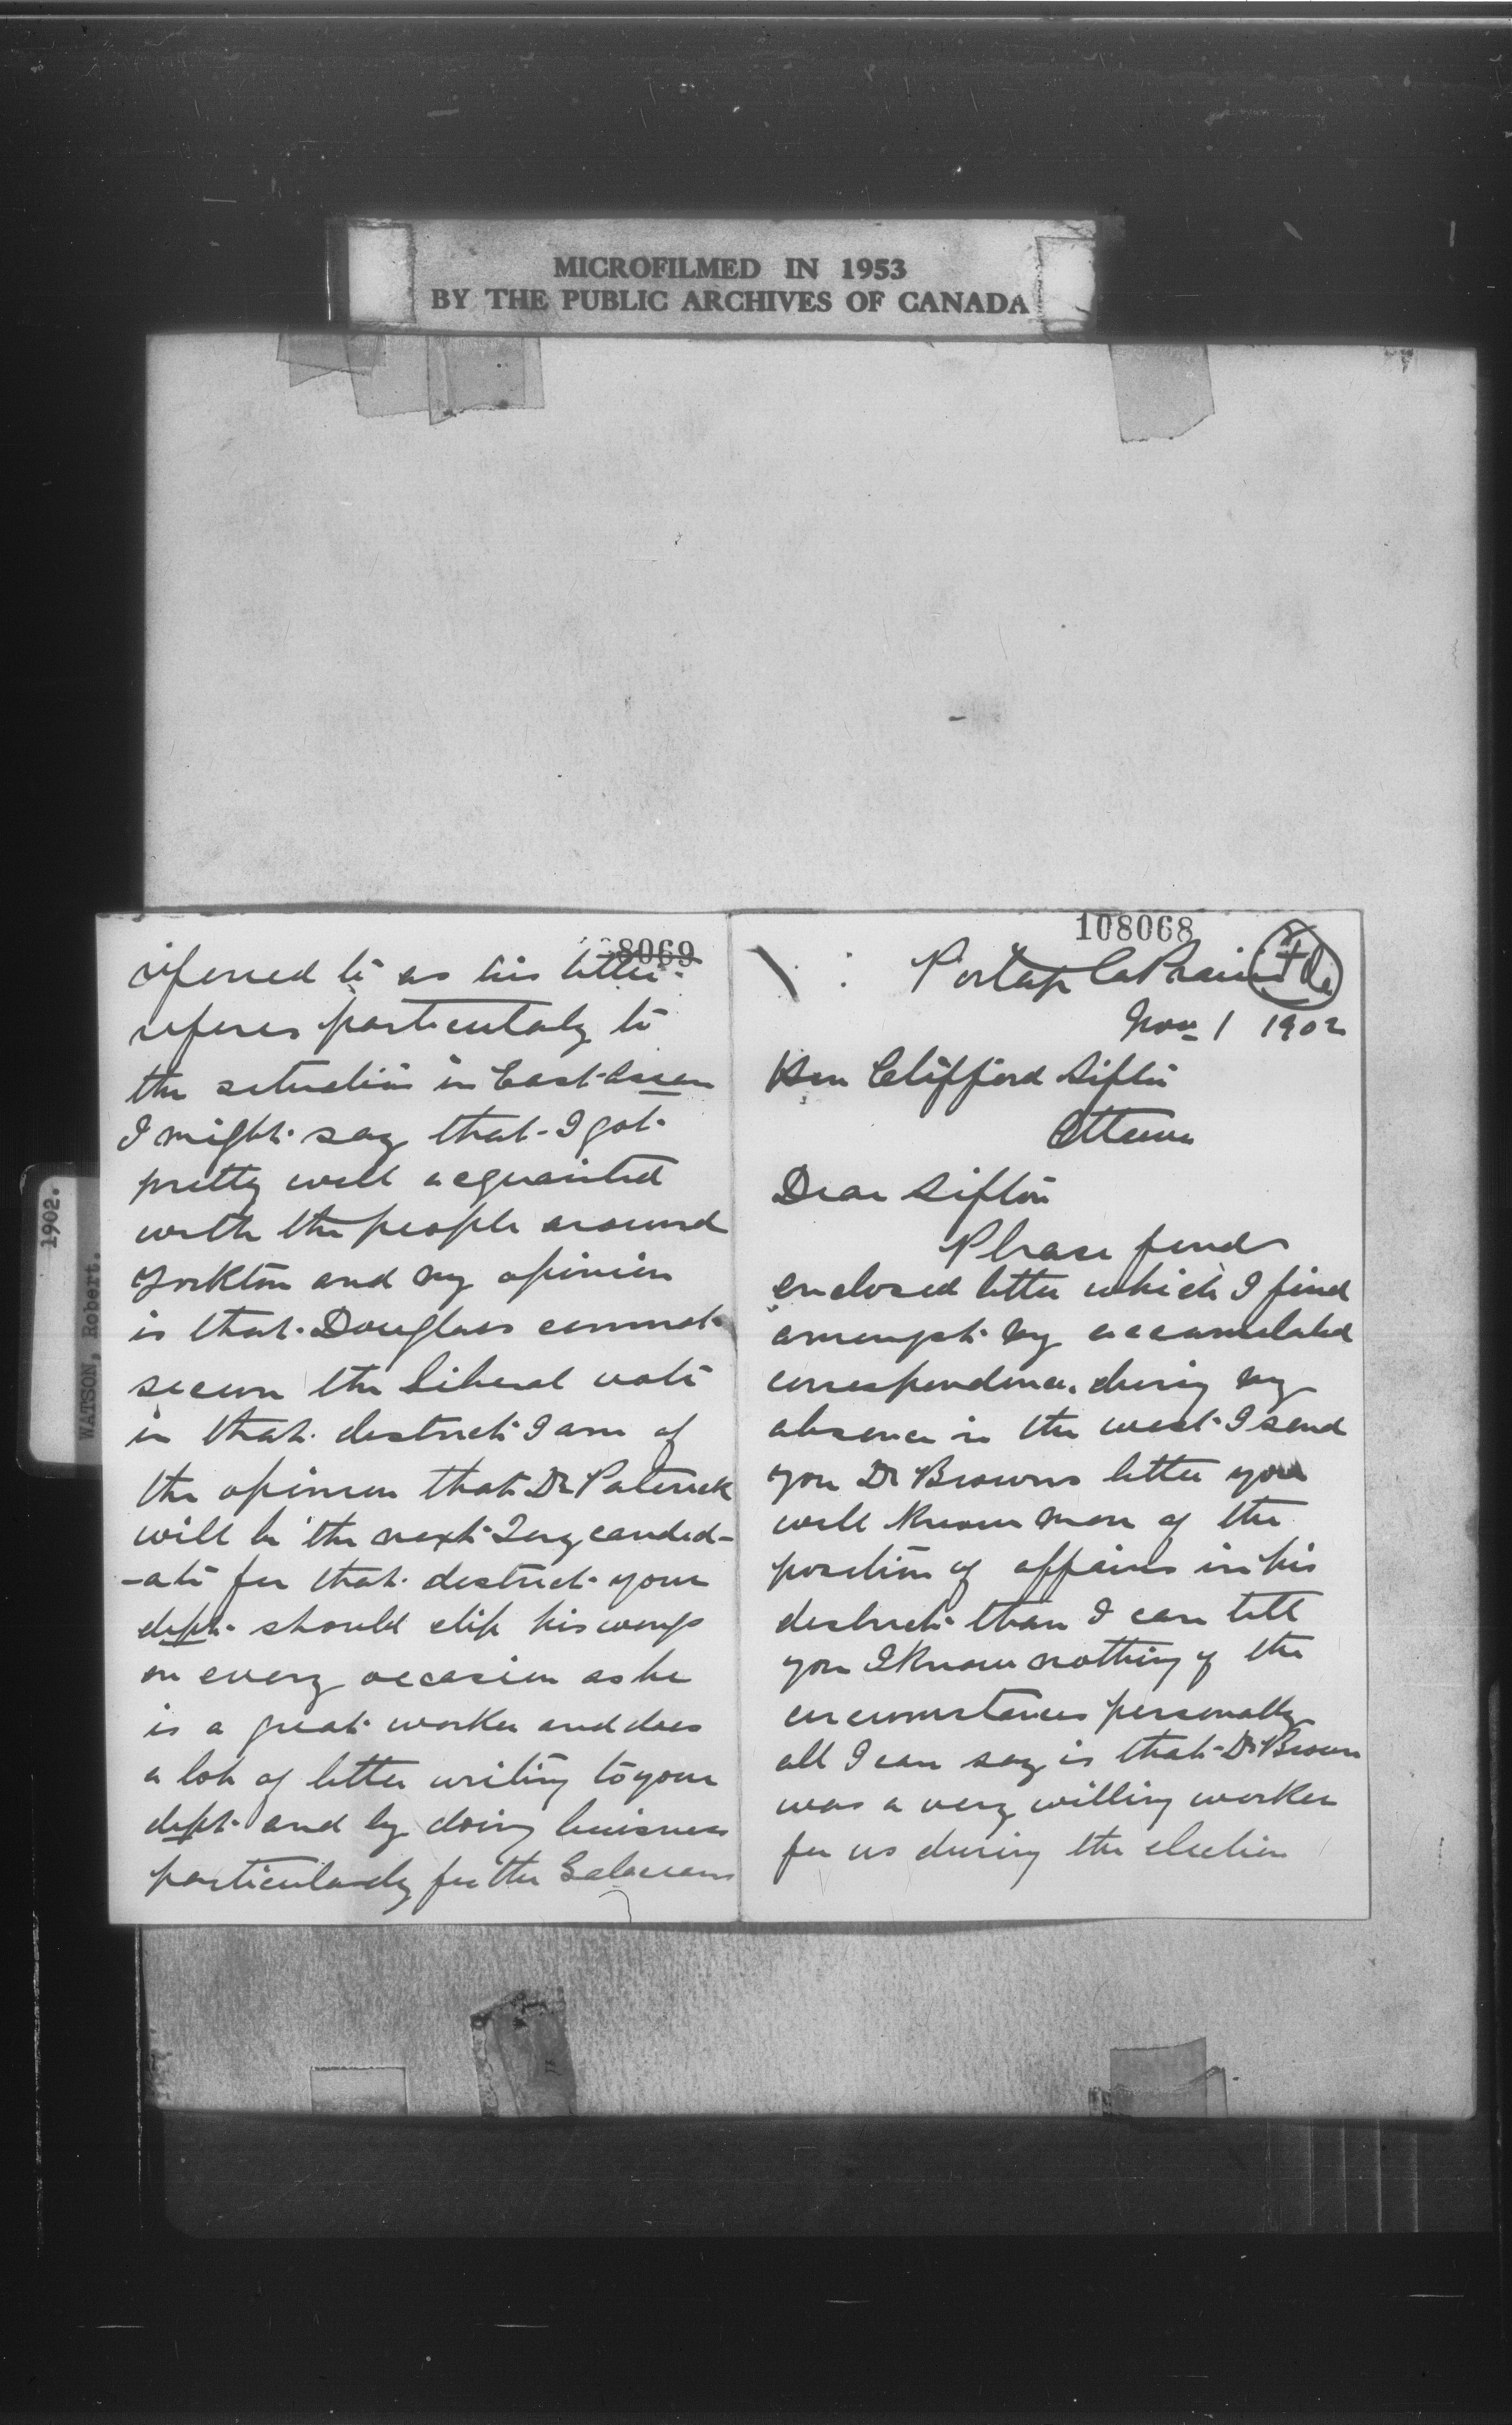 MICROFILMED IN 1953
BY THE PUBLIC ARCHIVES OF CANADA
1902.
WATSON, Robert.
108068
Portage La Prairie
Nov 1 1902
Hon Clifford Sifton
Ottawa
Dear Sifton
Please find
enclosed letter which I find
amongst my accumulated
correspondence during my
absence in the west I send
you Dr Browns letter you
will know more of the
position of affairs in his
district than I can tell
you I know nothing of the
circumstances personally
all I can say is that Dr Brown
was a very willing worker
for us during the election
8069
referred to as his letter
referes particularly to
the situation in East Assa
I might say that I got
pretty well acquainted
with the people around
Yorkton and my opinion
is that Douglass cannot
secure the Liberal vote
in that district I am of
the opinion that Dr Paterick
will be the next Tory candid-
-ate for that district your
dept should clip his wings
on every occasion as he
is a great worker and does
a lot of letter writing to your
dept and by doing buisness
particularly for the Galacians